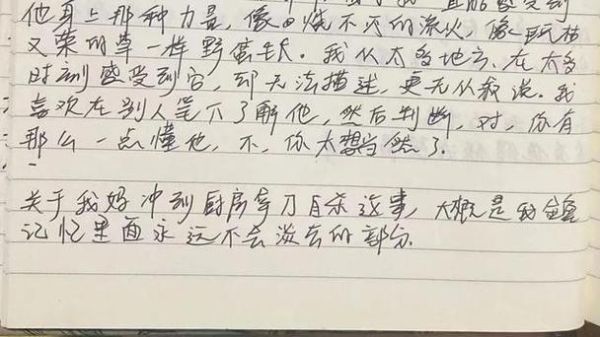 他身上那种力量，像田烧不灭的流火，像既枯
又荣的草一样野蛮生长。我从太多地方、在太多
时刻感受到它，却无法描述，更无从叙说。我
喜欢在别人笔下了解他，然后判断，对，你有
那么一点懂他，不，你太想当然了。
关于我妈冲到厨房拿刀自杀这事，大概是我
记忆里面永远不会淡去的部分。